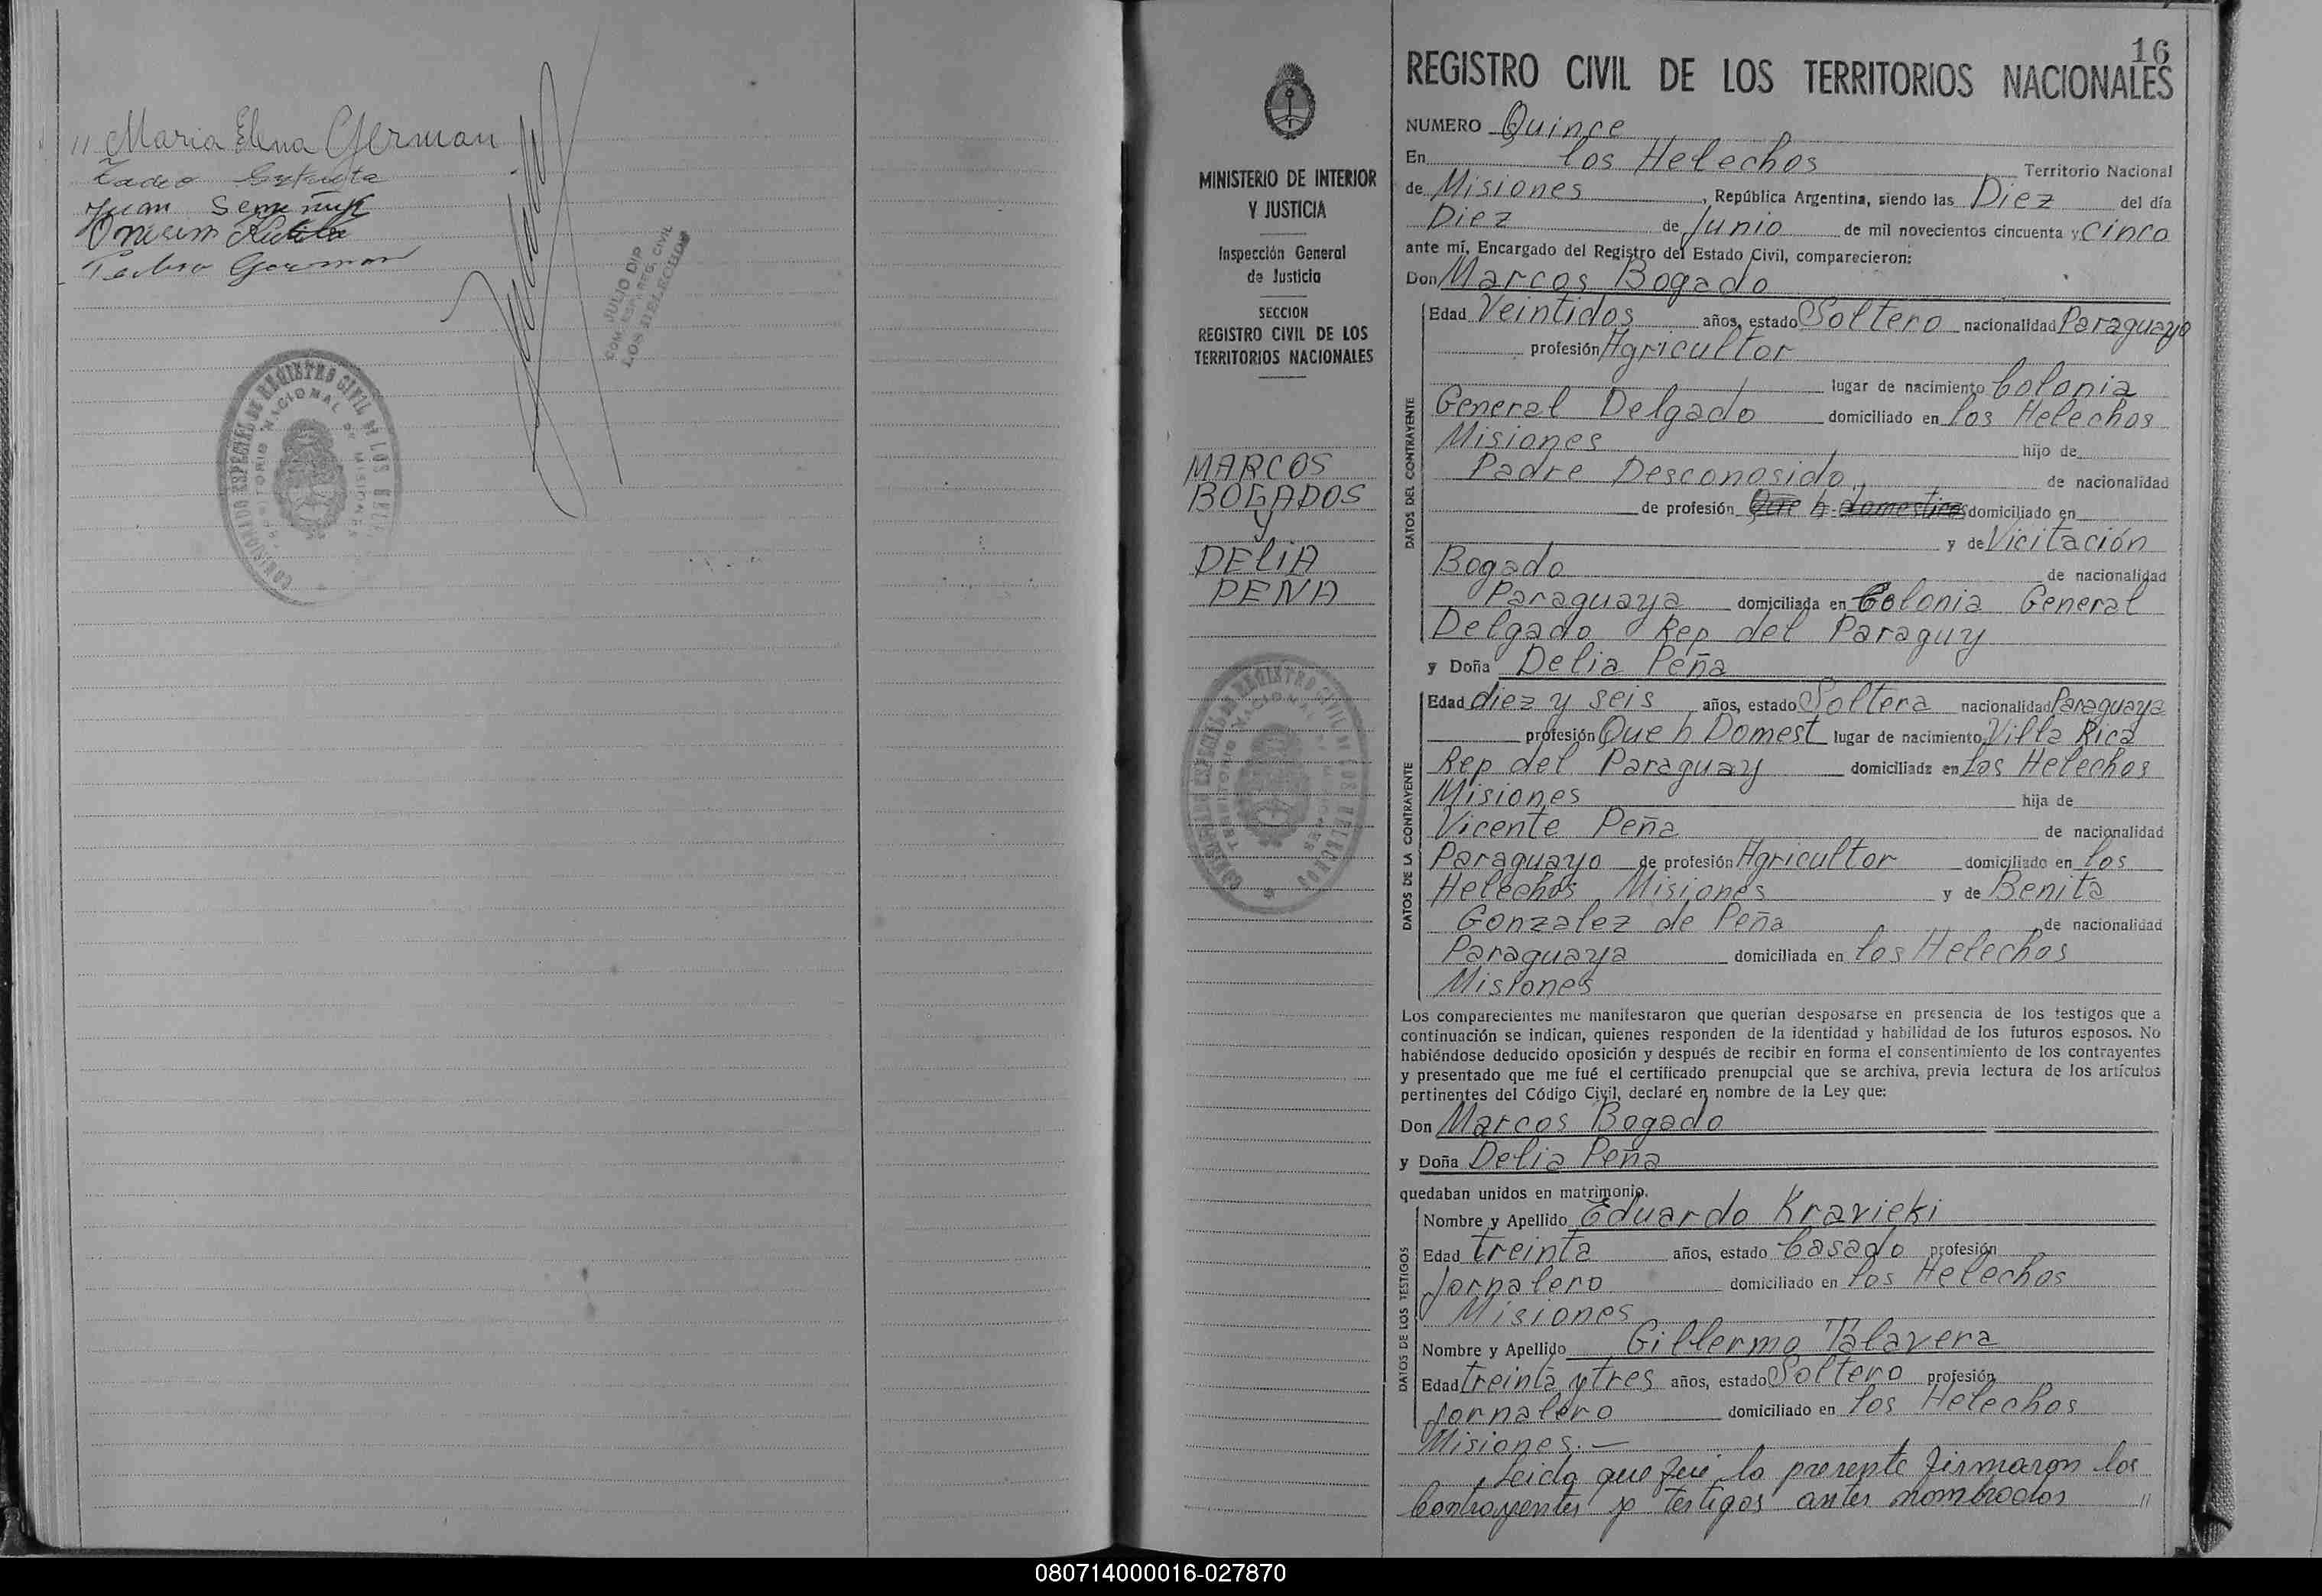 " Maria Elena German
Tadeo
Juan
Onisim
Pedro German
JULIO DIP
COM. ESP. REG. CIVIL
LOS HELECHOS
COMISIONADO ESPECIAL DE REGISTRO CIVIL DE LOS HELECHOS
TERRITORIO NACIONAL DE MISIONES
MINISTERIO DE INTERIOR
Y JUSTICIA
Inspección General
de Justicia
SECCION
REGISTRO CIVIL DE LOS
TERRITORIOS NACIONALES
MARCOS
BOGADOS
y
DELIA
PENA
COMISIONADO ESPECIAL DE REGISTRO CIVIL DE LOS HELECHOS
TERRITORIO NACIONAL DE MISIONES
16
REGISTRO CIVIL DE LOS TERRITORIOS NACIONALES
NUMERO Quince
En los Helechos Territorio Nacional
de Misiones, República Argentina, siendo las Diez del día
Diez de Junio de mil novecientos cincuenta y Cinco
ante mí, Encargado del Registro del Estado Civil, comparecieron:
Don Marcos Bogado
DATOS DEL CONTRAYENTE
Edad Veintidos años, estado Soltero nacionalidad Paraguayo
profesión Agricultor
lugar de nacimiento Colonia
General Delgado domiciliado en los Helechos
Misiones hijo de
Padre Desconosido, de nacionalidad
de profesión Que h. domesticos domiciliado en
y de Vicitación
Bogado de nacionalidad
Paraguaya domiciliada en Colonia General
Delgado Rep del Paraguy
y Doña Delia Peña
DATOS DE LA CONTRAYENTE
Edad diez y seis años, estado Soltera nacionalidad Paraguaya
profesión Que h Domest lugar de nacimiento Villa Rica
Rep del Paraguay domiciliada en los Helechos
Misiones hija de
Vicente Peña de nacionalidad
Paraguayo de profesión Agricultor domiciliado en los
Helechos Misiones y de Benita
Gonzalez de Peña de nacionalidad
Paraguaya domiciliada en los Helechos
Misiones
Los comparecientes me manifestaron que querían desposarse en presencia de los testigos que a
continuación se indican, quienes responden de la identidad y habilidad de los futuros esposos. No
habiéndose deducido oposición y después de recibir en forma el consentimiento de los contrayentes
y presentado que me fué el certificado prenupcial que se archiva, previa lectura de los artículos
pertinentes del Código Civil, declaré en nombre de la Ley que:
Don Marcos Bogado
y Doña Delia Peña
quedaban unidos en matrimonio.
DATOS DE LOS TESTIGOS
Nombre y Apellido Eduardo Kravieki
Edad treinta años, estado Casado profesión
Jornalero domiciliado en los Helechos
Misiones
Nombre y Apellido Gillermo Talavera
Edad treinta y tres años, estado Soltero profesión
Jornalero domiciliado en los Helechos
Misiones.—
Leida que fué la presente firmaron los
Contrayentes y testigos antes nombrados "
080714000016-027870